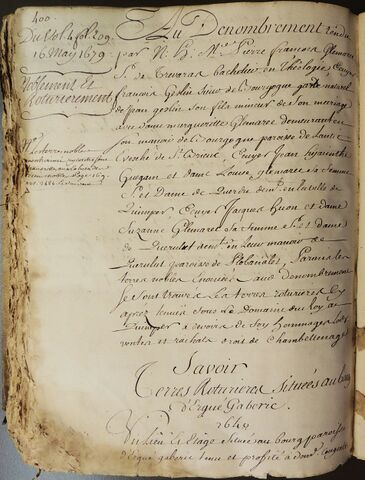 400
Du Vol 4 fol 209
16 May 1679
Noblement Et
Roturierement
Au Denombrement rendu
par N. H. Mre Pierre francois Glemarec
Sr de Crevaras bachelier en Theologie, Ecuyer
francois Geslin sieur de bourgogne garde naturel
de Jean geslin son fils mineur de son mariage
avec dame marguerite Glemarec demeurant en
son manoir de bourgogne paroisse de Lantic
Evesché de St brieux, Ecuyer Jean hyacinthe
Guegant et dame Louise glemarec sa femme
Sr et Dame de Querdre demt en la ville de
Quimper Ecuyer Jacques huon et dame
Suzanne Glemarec sa femme Sr et dame
de demt en leur manoir de
paroisse de Parmi les
terres nobles Enoncées aud denombrement
se sont trouvés les terres roturieres Cy
apres tenues sous le domaine du Roy de
Quimper a devoir de foy hommage Lods
ventes et rachats droit de Chambellenage
Savoir
Terres Roturieres situées au bourg
d'Ergué Gaberic.
Un Lieu Et Etage situé au bourg paroissial
d'Ergué gaberic tenu et profité a domaine congeable